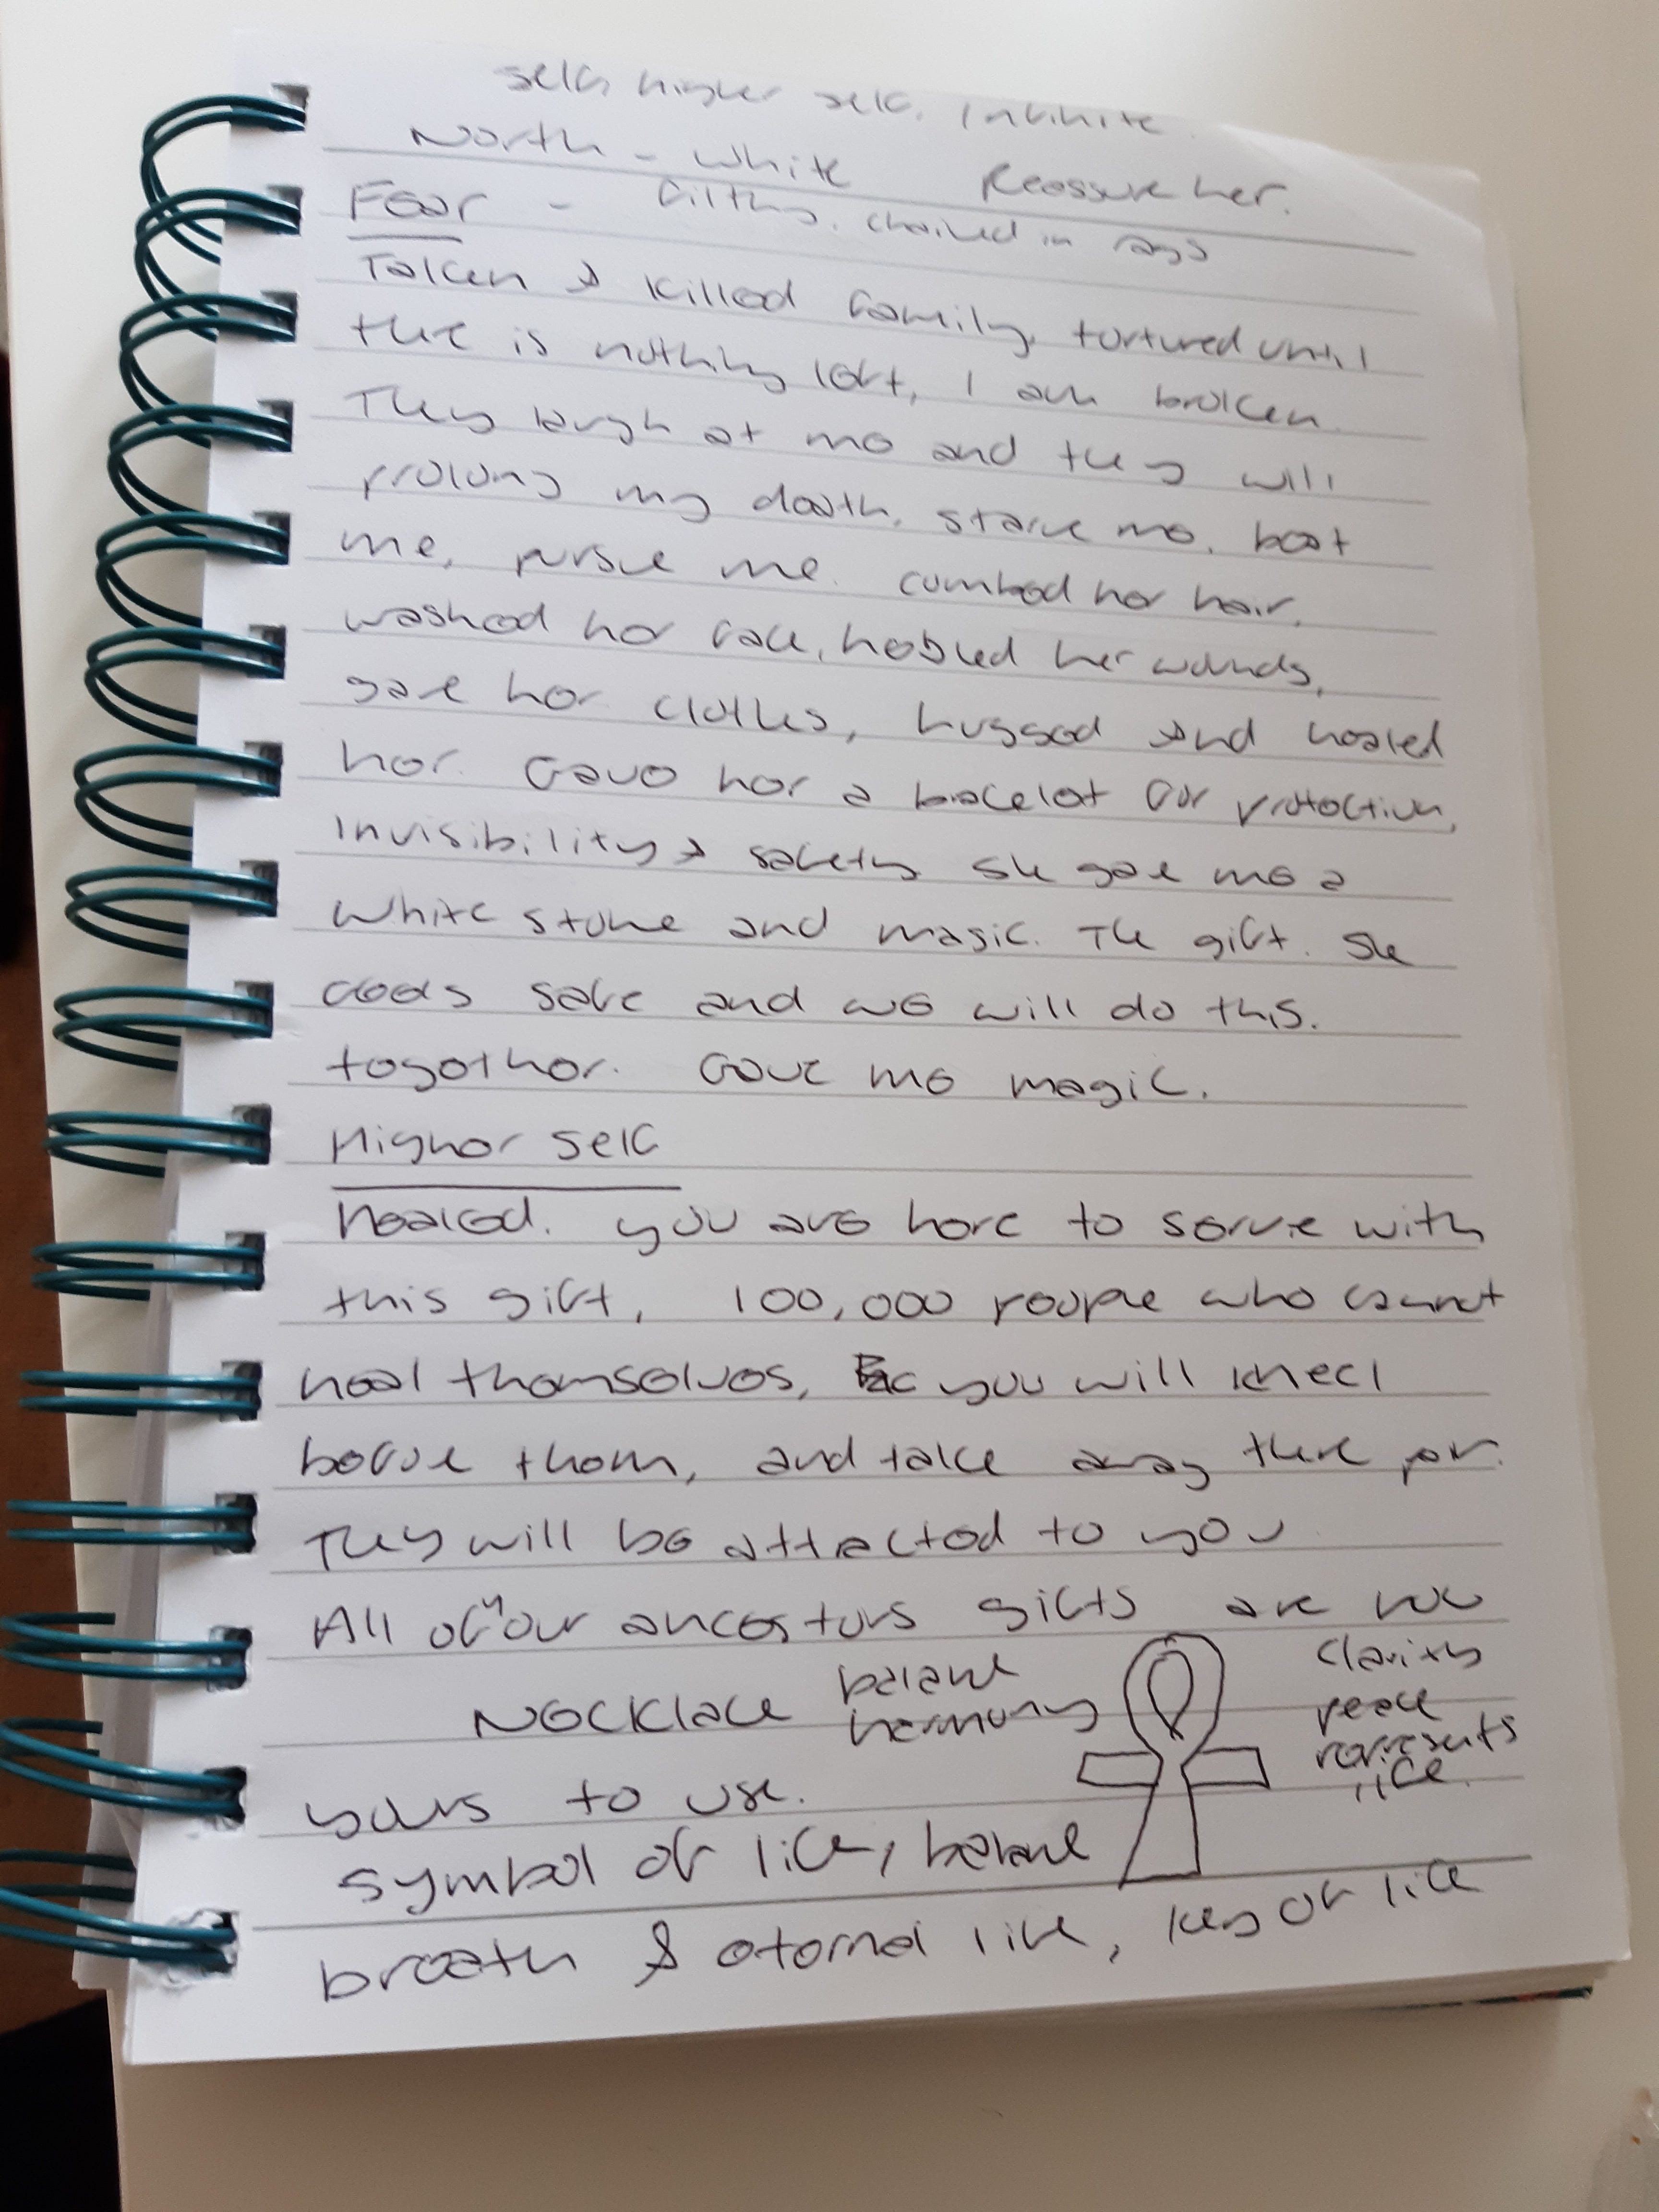 self, higher self, infinite.
North - white Reassure her.
Fear - filthy, chained in rags
Taken & killed family, tortured until
there is nothing left, I am broken.
They laugh at me and they will
prolong my death, starve me, beat
me, pursue me. combed her hair,
washed her face, healed her wounds,
gave her clothes, hugged and healed
her. Gave her a bracelet for protection,
invisibility & safety she gave me a
white stone and magic. The gift. She
feels safe and we will do this.
together. Gave me magic.
Higher self
healed. you are here to serve with
this gift, 100,000 people who cannot
heal themselves, you will kneel
before them, and take away there
They will be attracted to you
All of your ancestors gifts are now
Necklace balance harmony
clarity
peace
represents
life.
yours to use.
symbol of life, balance
breath & eternal life, key of life